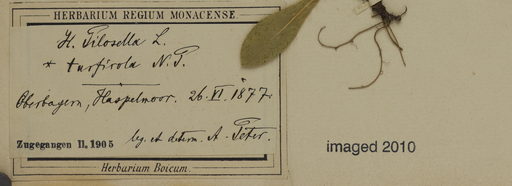 HERBARIUM REGIUM MONACENSE.
H. Pilosella L.
* turficola N. P.
Oberbayern, Haspelmoor. 26. VI. 1877.
leg. et determ. A. Peter.
Zugegangen II. 1905
Herbarium Boicum.
imaged 2010